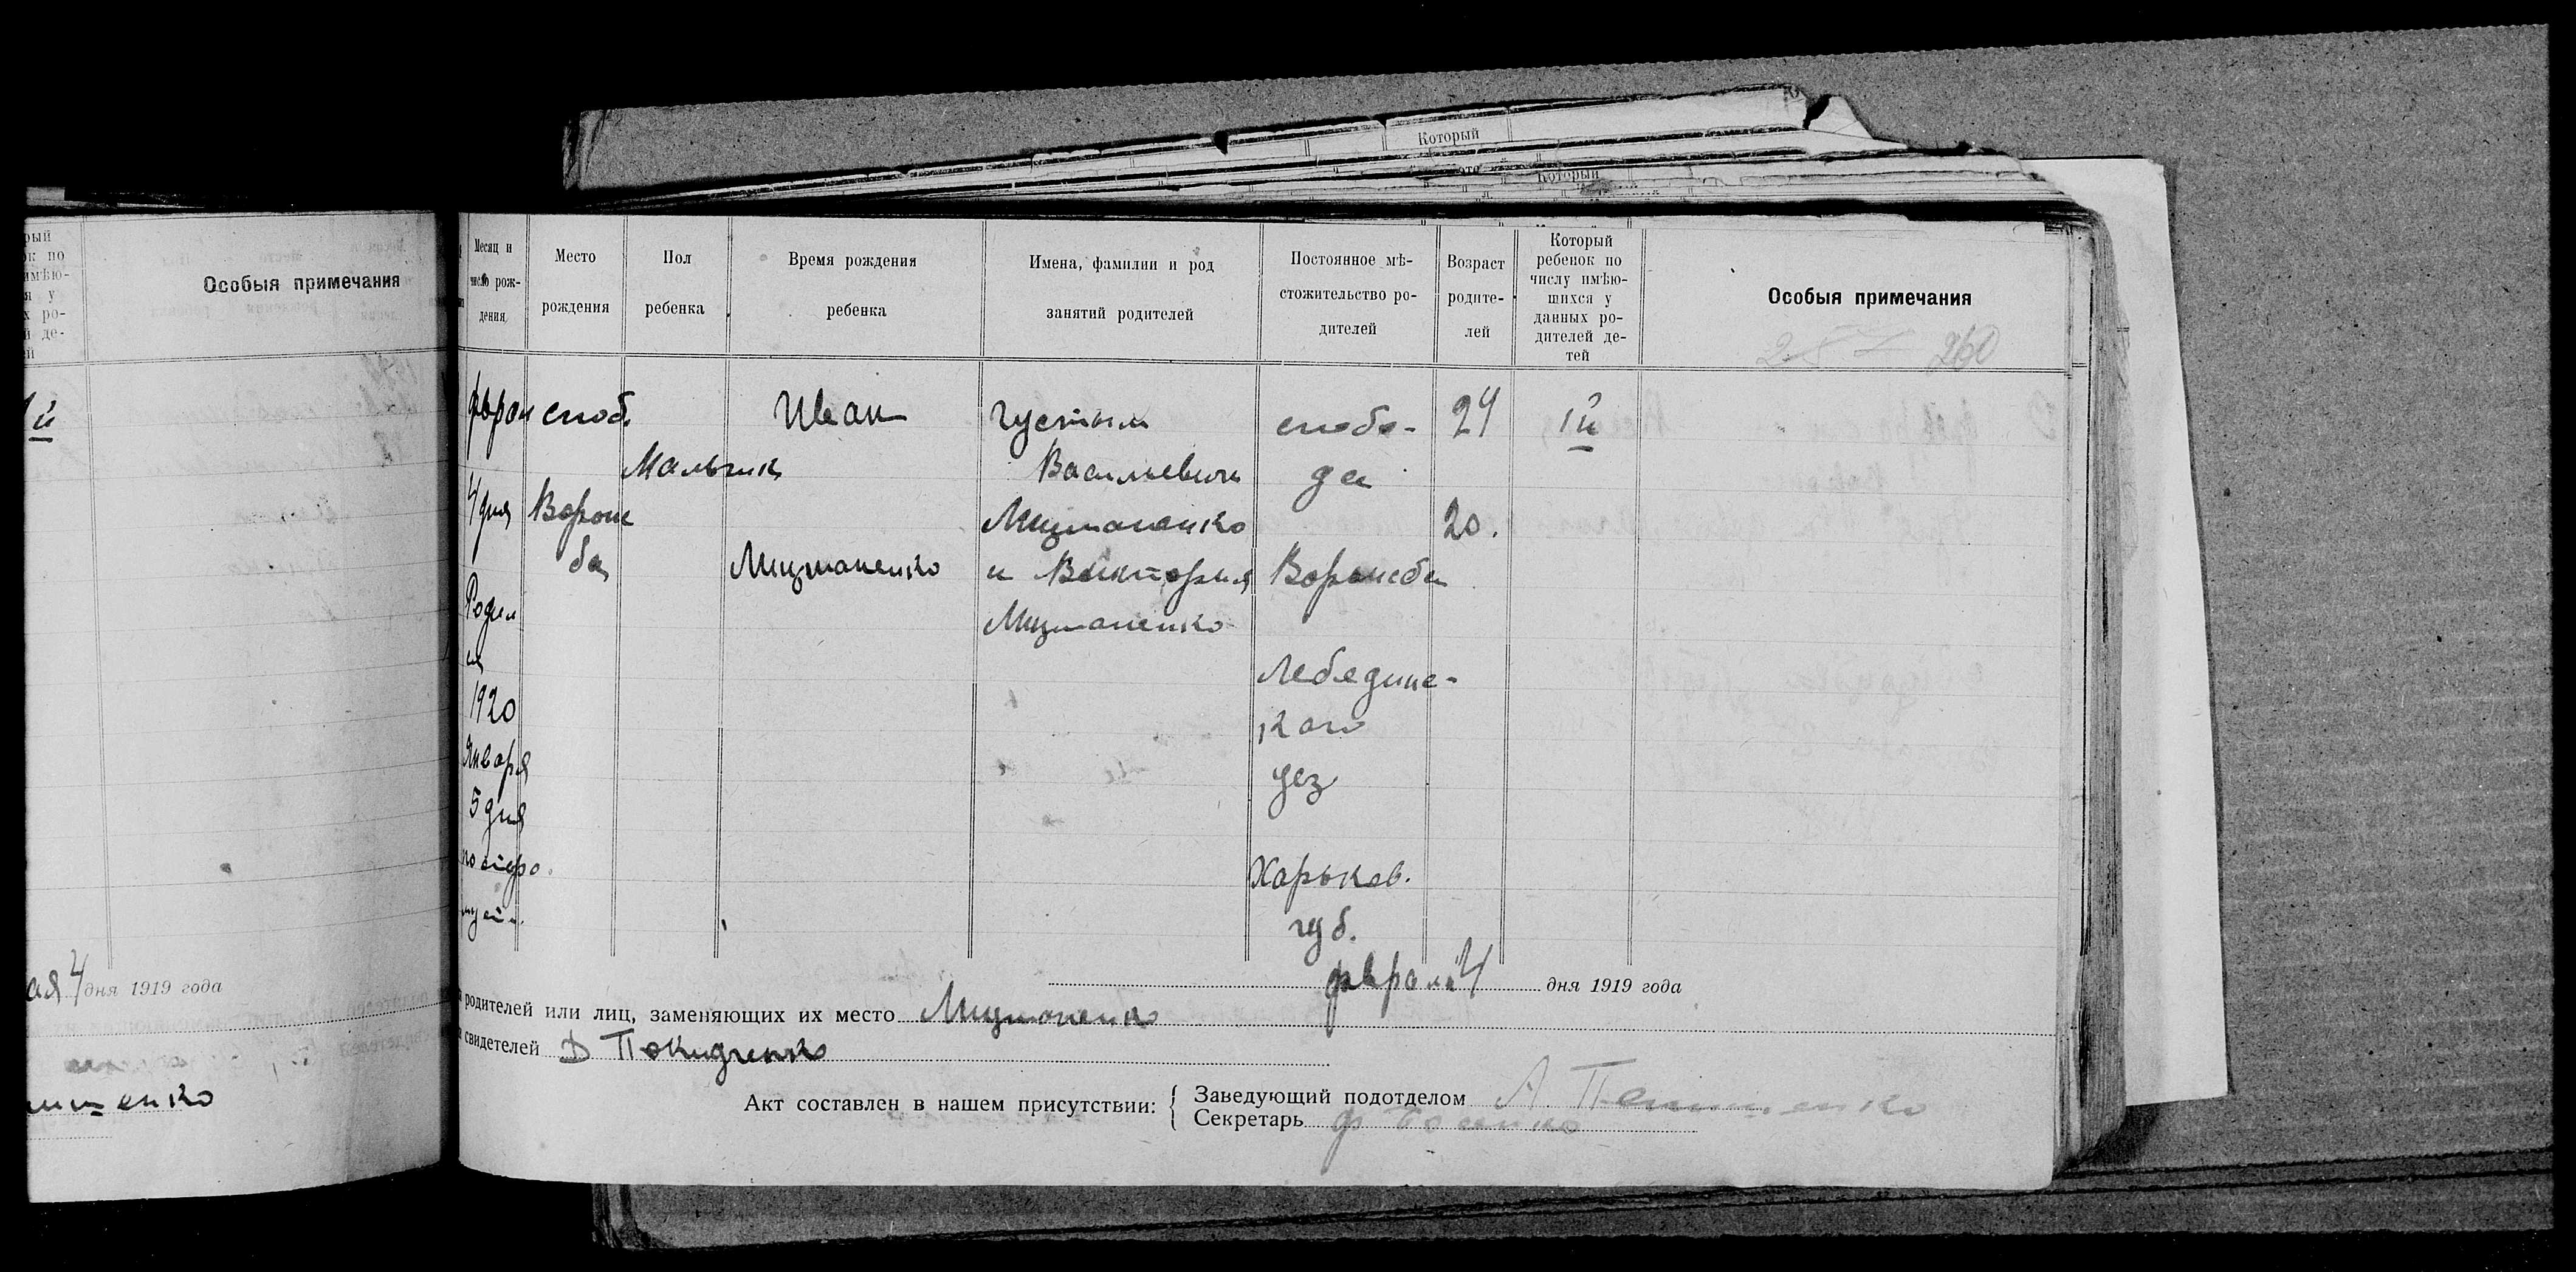 Который
Который
рый
ок по
имѣю-
я у
х ро-
й де-
ей
Особыя примечания
й
ая 4 дня 1919 года
енко
Месяц и
число рож-
дения
Место
рождения
Пол
ребенка
Время рождения
ребенка
Имена, фамилии и род
занятий родителей
Постоянное мѣ-
стожительство ро-
дителей
Возраст
родите-
лей
Который
ребенок по
числу имѣю-
шихся у
данных ро-
дителей де-
тей
Особыя примечания
260
4 дня
Родил
ся
1920
Января
5 дня
слоб.
Ворож
ба
Мальчик
Иван
Мицманенко
Густым
Васильевич
Мицманенко
и Виктория
Мицманенко
слобо-
да
Ворожба
Лебединс-
каго
уез
Харьков.
губ.
24
20.
1й
февраля 4 дня 1919 года
родителей или лиц, заменяющих их место Мицманенко
свидетелей
Акт составлен в нашем присутствии:
Заведующий подотделом А
Секретарь